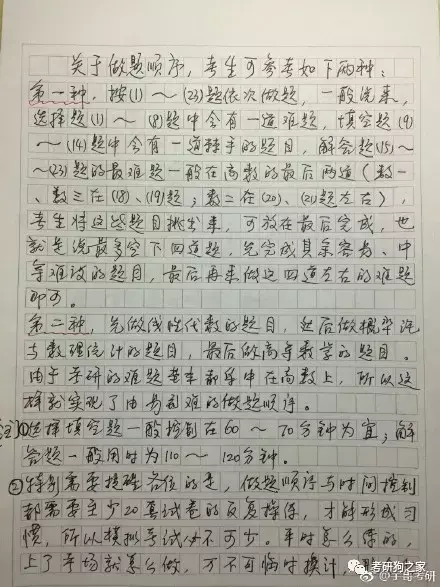 关于做题顺序,考生可参考如下两种:
第一种,按(1)～(23)题依次做题,一般说来,
选择题(1)～(8)题中会有一道难题,填空题(9)
～(14)题中会有一道棘手的题目,解答题(15)～
～(23)题的最难题一般在高数的最后两道(数一
、数三在(18)、(19)题;数二在(20)、(21)题左右),
考生将这些题目挑出来,可放在最后完成,也
就是说最多空下四道题,先完成其余容易、中
等难度的题目,最后再来做这四道左右的难题
即可。
第二种,先做线性代数的题目,然后做概率论
与数理统计的题目,最后做高等数学的题目。
由于考研的难题基本都集中在高数上,所以这
样就实现了由易到难的做题顺序。
[注]①选择填空题一般控制在60～70分钟为宜;解
答题一般用时为110～120分钟。
②特别需要提醒各位的是,做题顺序与时间控制
都需要至少20套试卷的反复操练,才能形成习
惯,所以模拟考试必不可少。平时怎么练的,
上了考场就怎么做,万不可临时换计
考研狗之家
@宇哥考研